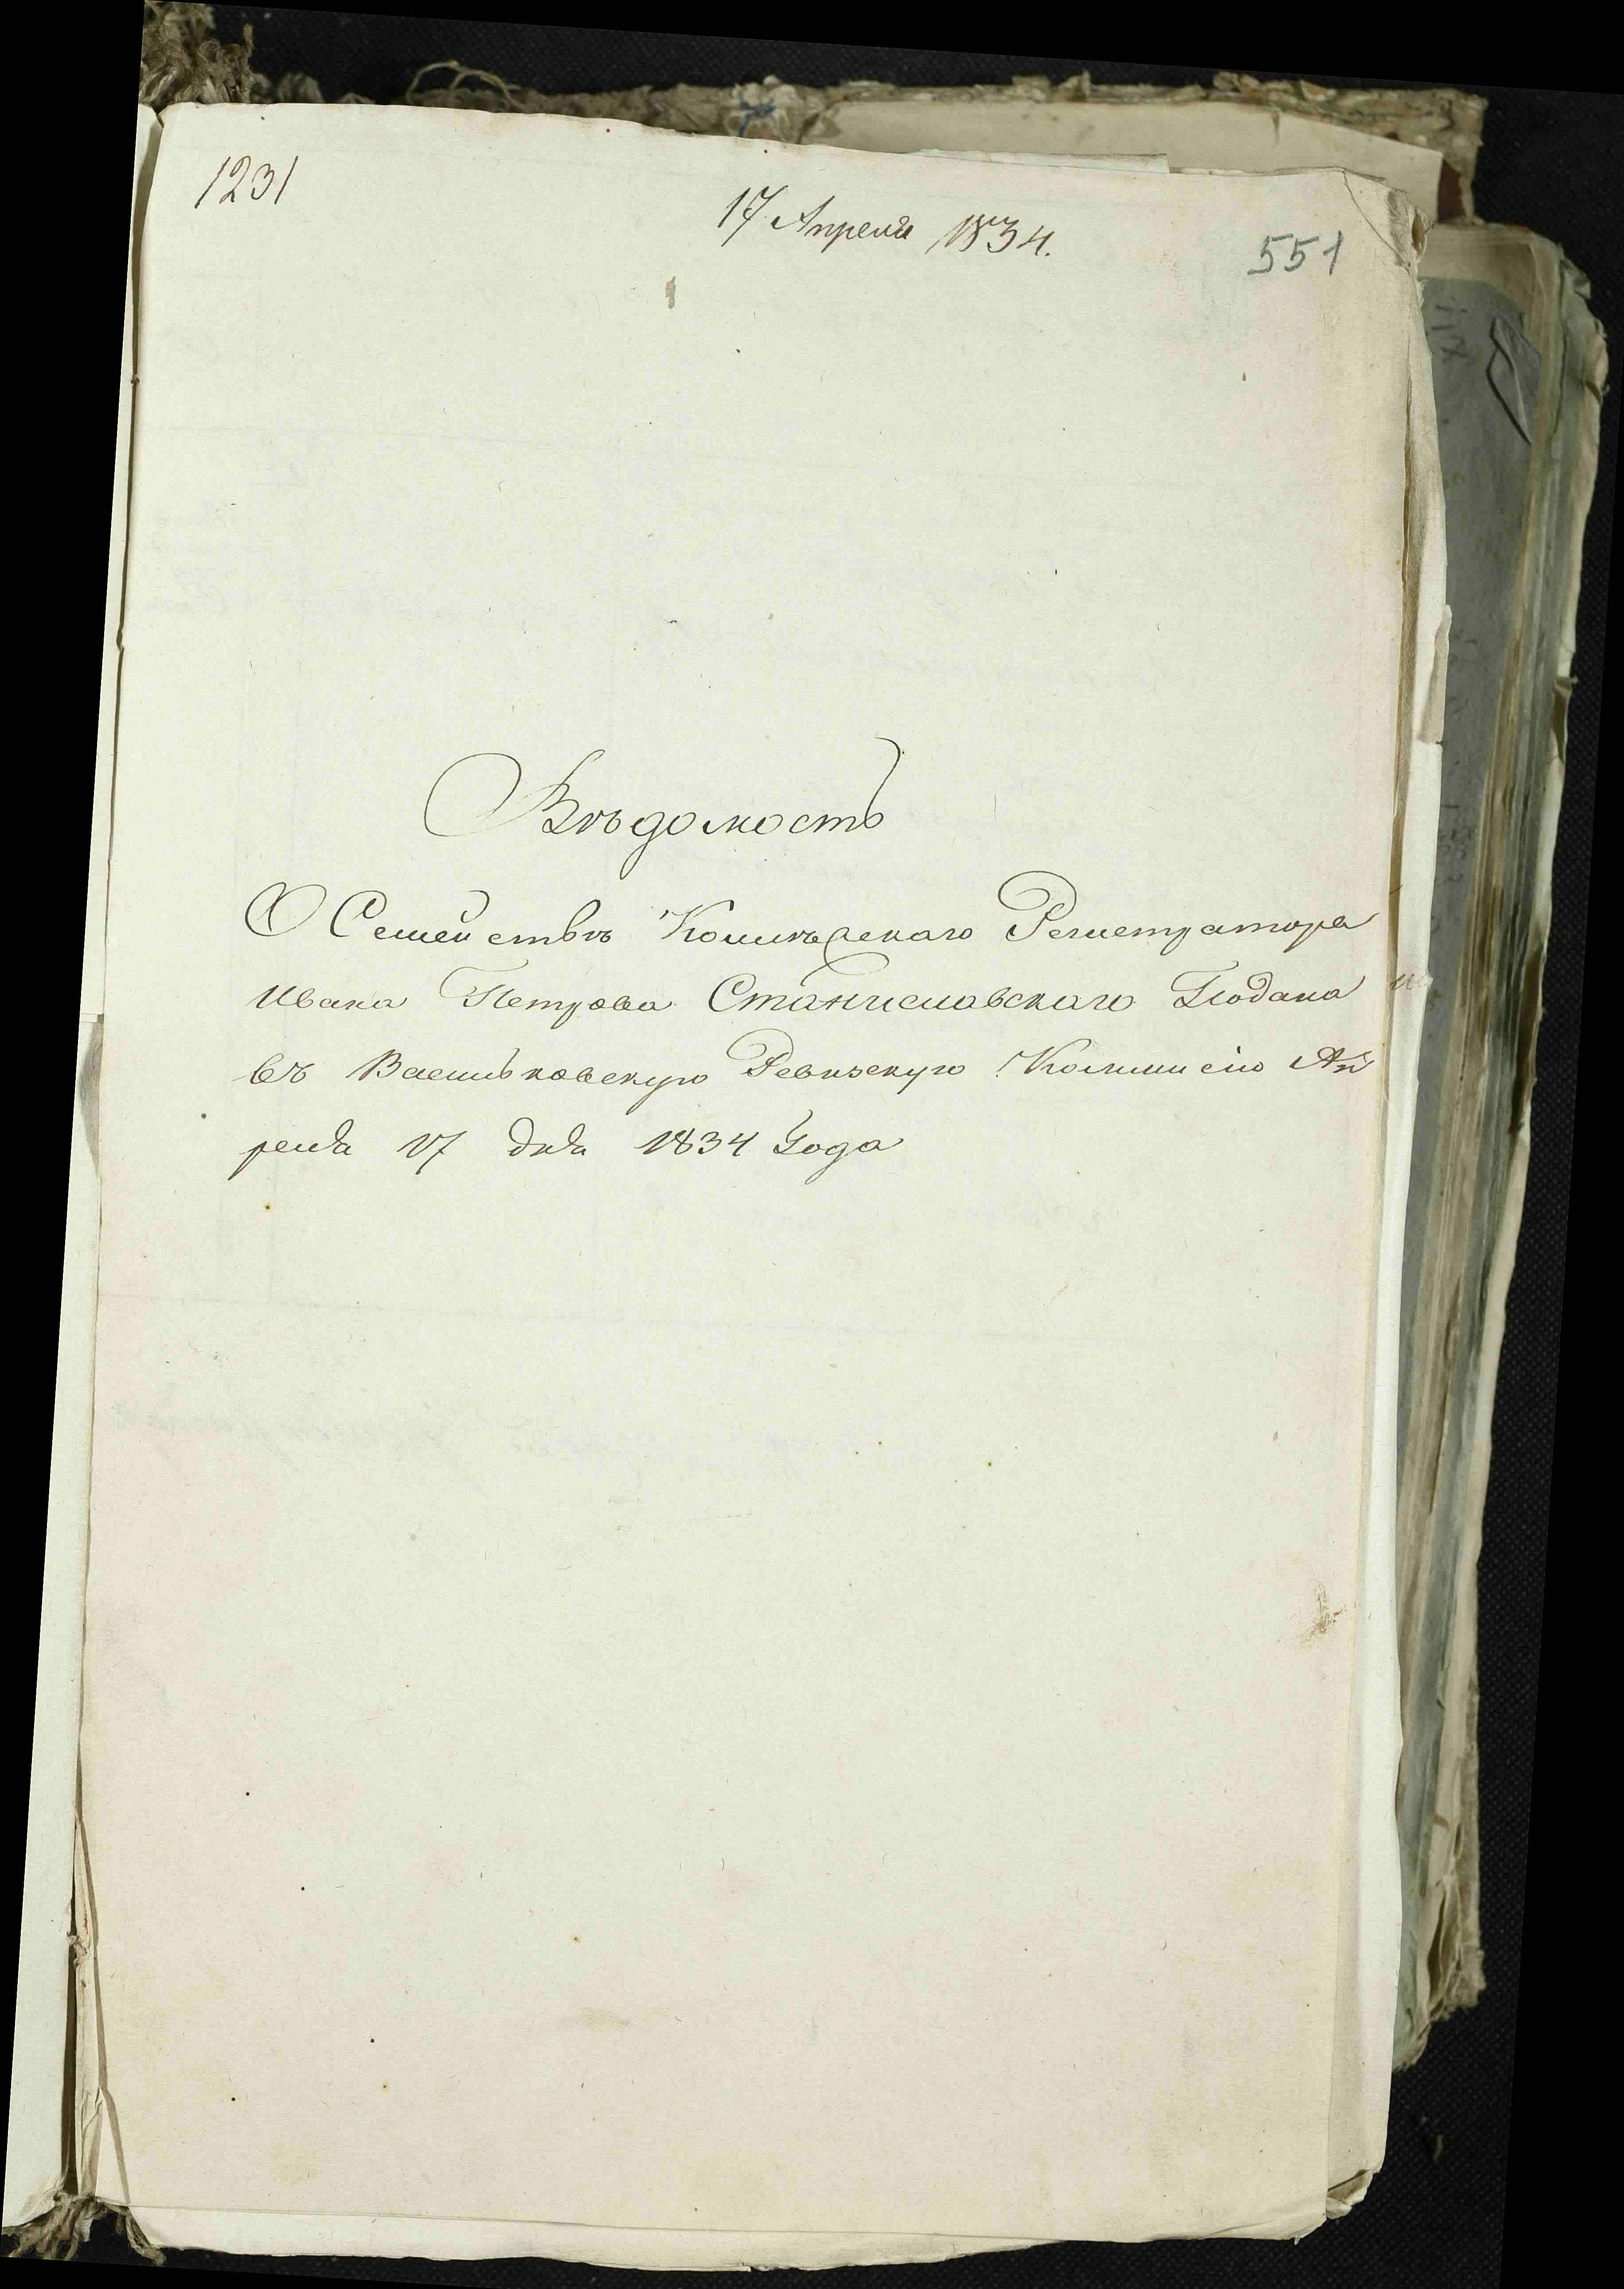 1231
17 Апреля 1834.
551
Вѣдомость
О Семействѣ Колѣжскаго Регистратора
Ивана Петрова Станиславскаго Подана
въ Васильковскую Ревизскую Комисію Ап
реля 17 дня 1834 Года